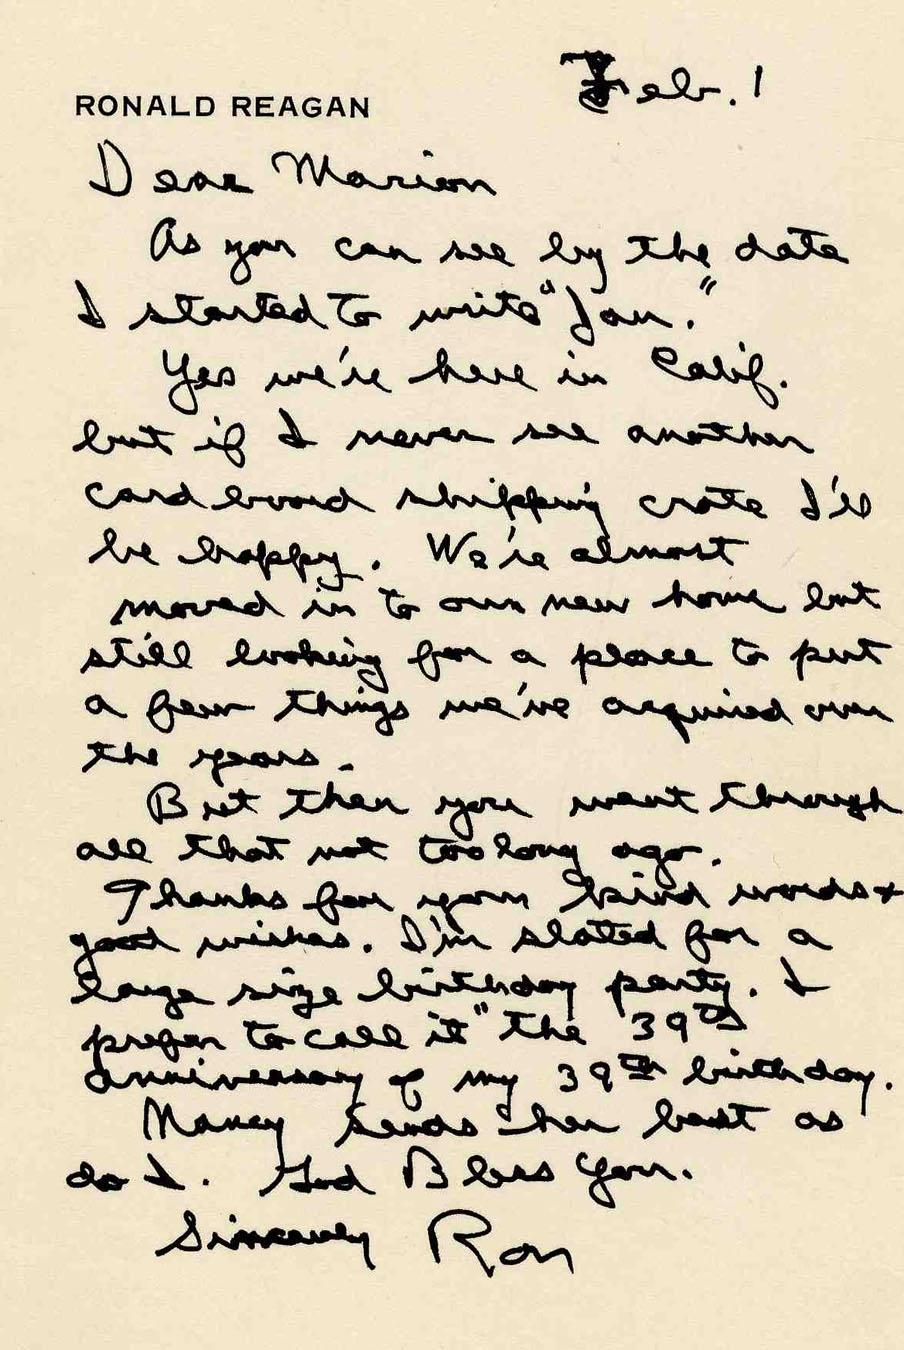 Feb. 1
RONALD REAGAN
Dear Marion
As you can see by the date
I started to write "Jan."
Yes we're here in Calif.
but if I never see another
cardboard shipping crate I'll
be happy. We're almost
moved in to our new home but
still looking for a place to put
a few things we've acquired over
the years.
But then you went through
all that not too long ago.
Thanks for your kind words &
good wishes. I'm slated for a
large size birthday party. I
prefer to call it "the 39th
anniversary of my 39th birthday.
Nancy sends her best as
do I. God Bless You.
Sincerely Ron